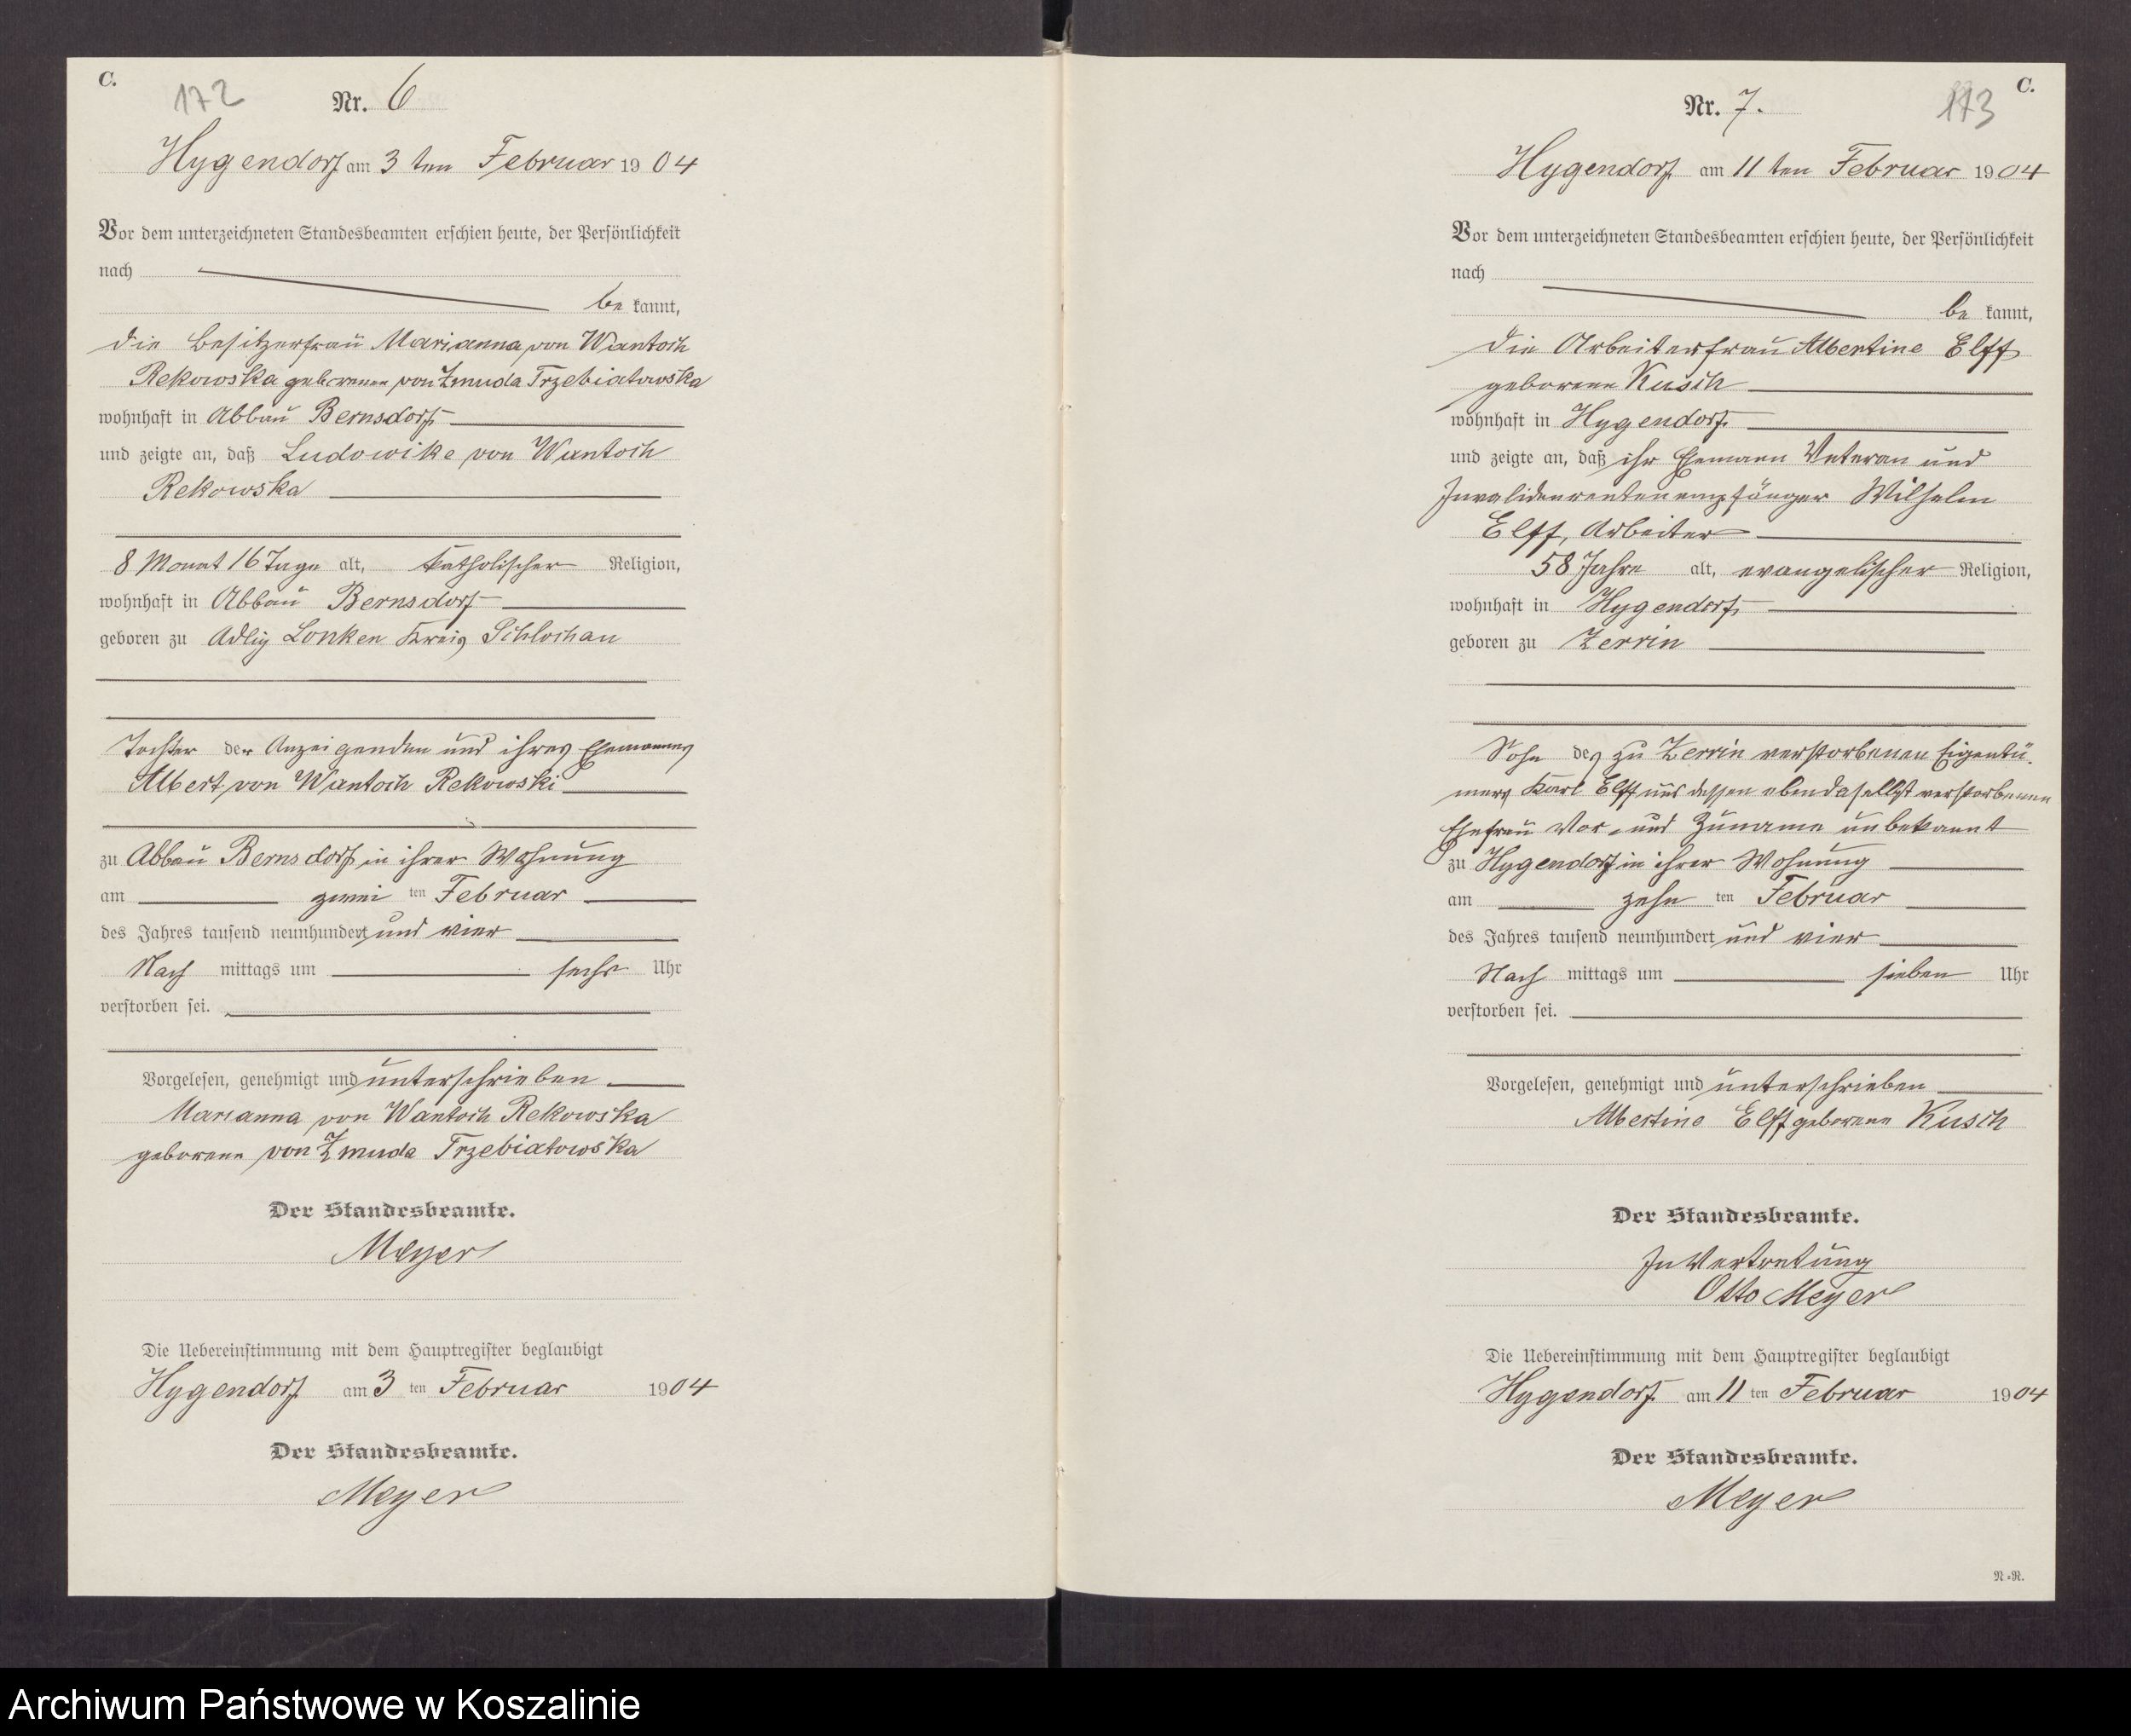 C.
172
Nr. 6
Hygendorf am 3 ten Februar 1904
Vor dem unterzeichneten Standesbeamten erschien heute, der Persönlichkeit
nach
be kannt,
die Besitzerfrau Marianna von Wantoch
Rekowska geborenen von Zmuda Trzebiatowska
wohnhaft in Abbau Bernsdorf
und zeigte an, daß Ludowike von Wantoch
Rekowska
8 Monat 16 Tage alt, katholischer Religion,
wohnhaft in Abbau Bernsdorf
geboren zu Adlig Lonken Kreis Schlochau
Tochter der Anzeigenden und ihres Ehemannes
Albert von Wantoch Rekowski
zu Abbau Bernsdorf in ihrer Wohnung
am zwei ten Februar
des Jahres tausend neunhundert und vier
Nach mittags um sechs Uhr
verstorben sei.
Vorgelesen, genehmigt und unterschrieben
Marianna von Wantoch Rekowska
geborene von Zmuda Trzebiatowska
Der Standesbeamte.
Meyer
Die Uebereinstimmung mit dem Hauptregister beglaubigt
Hygendorf am 3 ten Februar 1904
Der Standesbeamte.
Meyer
C.
173
Nr. 7.
Hygendorf am 11 ten Februar 1904
Vor dem unterzeichneten Standesbeamten erschien heute, der Persönlichkeit
nach
be kannt,
die Arbeiterfrau Albertine Elff
geborene Kusch
wohnhaft in Hygendorf
und zeigte an, daß ihr Ehemann Veteran und
Invalidenrentenempfänger Wilhelm
Elff, Arbeiter
58 Jahre alt, evangelischer Religion,
wohnhaft in Hygendorf
geboren zu Zerrin
Sohn des zu Zerrin verstorbenen Eigentü-
mers Karl Elff und dessen ebendaselbst verstorbenen
Ehefrau Vor- und Zuname unbekannt
zu Hygendorf in ihrer Wohnung
am zehn ten Februar
des Jahres tausend neunhundert und vier
Nach mittags um sieben Uhr
verstorben sei.
Vorgelesen, genehmigt und unterschrieben
Albertine Elff geborene Kusch
Der Standesbeamte.
In Vertretung
Otto Meyer
Die Uebereinstimmung mit dem Hauptregister beglaubigt
Hygendorf am 11 ten Februar 1904
Der Standesbeamte.
Meyer
N=N.
Archiwum Państwowe w Koszalinie